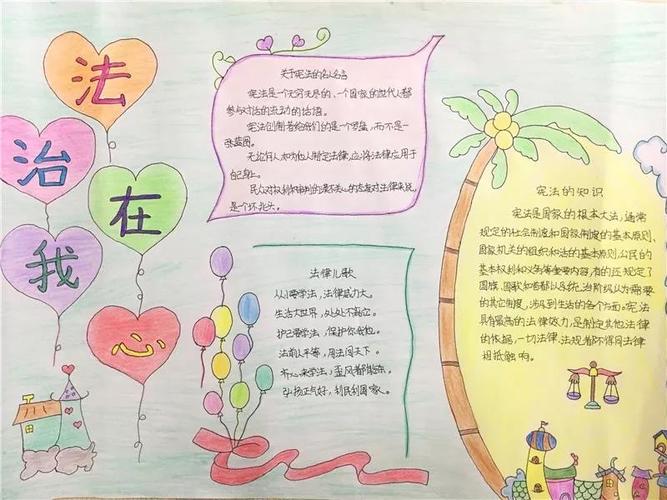 法
治
在
我
心
关于宪法的名人名言
宪法是一个无穷无尽的、一个国家的世代人都
参与对话的流动的话语。
宪法创制者给我们的是一个罗盘，而不是一
张蓝图。
无论何人，如为他人制定法律，应将法律应用于
自己身上。
民众对权利和审判的漠不关心的态度对法律来说，
是个坏兆头。
法律儿歌
从小要学法，法律威力大。
生活大世界，处处不离它。
护己要学法，保护你我他。
法前人平等，用法闯天下。
齐心来学法，歪风者都
弘扬正气好，利民利国家。
宪法的知识
宪法是国家的根本大法，通常
规定的社会制度和国家制度的基本原则、
国家机关的组织和活的基本原则，公民的
基本权利和义务等重要内容，有的还规定了
国旗、国歌和首都以及统治阶级认为需要
的其它制度，涉及到生活的各个方面。宪法
具有最高的法律效力，是制定其他法律
的依据，一切法律、法规都不得同法律
相抵触啊。